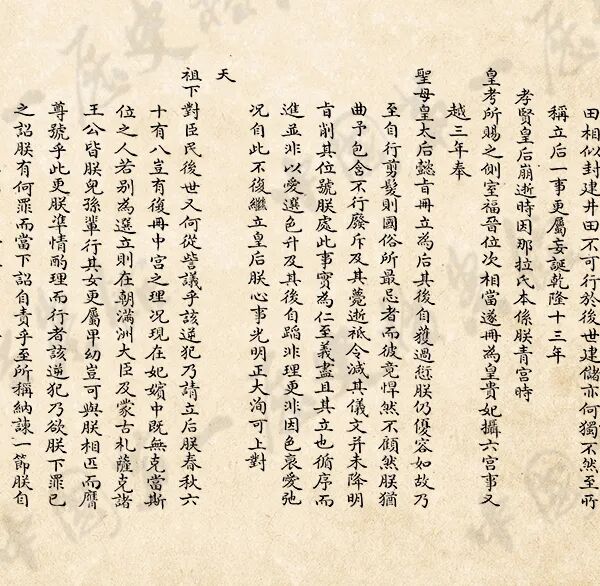 田相似封建井田不可行於後世建儲亦何獨不然至所
稱立后一事更屬妄誕乾隆十三年
孝賢皇后崩逝時因那拉氏本係朕青宮時
皇考所賜之側室福晉位次相當遂冊為皇貴妃攝六宮事又
越三年奉
聖母皇太后懿旨冊立為后其後自獲過愆朕仍優容如故乃
至自行剪髮則國俗所最忌者而彼竟悍然不顧然朕猶
曲予包含不行廢斥及其薨逝祗令減其儀文並未降明
旨削其位號朕處此事實為仁至義盡且其立也循序而
進並非以愛選色升及其後自蹈非理更非因色衰愛弛
况自此不復繼立皇后朕心事光明正大洵可上對
天
祖下對臣民後世又何從訾議乎該逆犯乃請立后朕春秋六
十有八豈有復冊中宮之理况現在妃嬪中既無克當斯
位之人若別為選立則在朝滿洲大臣及蒙古札薩克諸
王公皆朕兒孫輩行其女更屬卑幼豈可與朕相匹而膺
尊號乎此更朕凖情酌理而行者該逆犯乃欲朕下罪已
之詔朕有何罪而當下詔自責乎至所稱納諫一節朕自